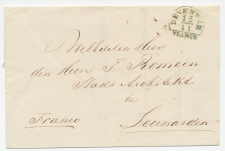 DEVENTER
15
11
FRANCO
Weledelen Heer
den Heer J. Romein
Stads Architekt
te
Franco Leeuwarden